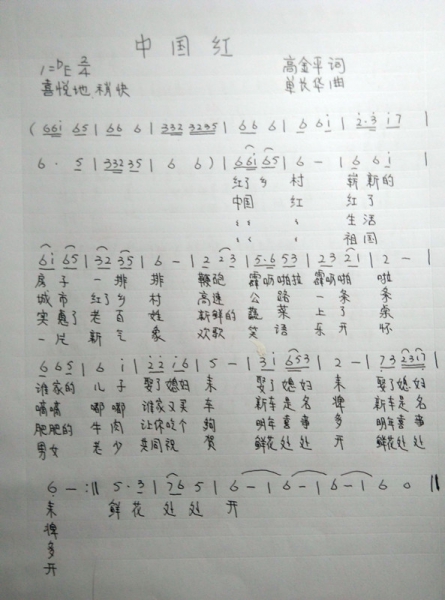 中国红
1=ᵇE 2/4 高金平词
喜悦地 稍快 单长华曲
( 66i 65 | 66 6 | 332 3235 | 66 6 | 6 6i | i·3 i7 |
6· 5 | 3235 | 6 6 ) | 66i 65 | 6 - | 6 6i |
红了乡 村 崭新的
中国 红 红了
〃 〃 生活
〃 〃 祖国
6i 65 | 32 35 | 6 - | 2 23 | 5·6 53 | 23 21 | 2 - |
房子 一排 排 鞭炮 霹呖啪拉 霹呖啪 啦
城市 红了乡 村 高速 公路 一条 条
实惠了 老百 姓 新鲜的 蔬菜 上了 桌
一片 新气 象 欢歌 笑语 乐开 怀
6 65 | 6 i | 22 i6 | 5 - | 3i 653 | 2 - | 73 2317 |
谁家的 儿子 娶了媳妇 来 娶了媳妇 来 娶了媳妇
嘀嘀 嘟嘟 谁家又买 车 新车是名 牌 新车是名
肥肥的 牛肉 让你吃个 够 明年喜事 多 明年喜事
男女 老少 共同祝 贺 鲜花处处 开 鲜花处处
6 - :‖ 5·3 | 76 5 | 6 - | 6 - | 6 - | 6 - | 6 0 ‖
来 鲜花 处处 开
牌
多
开